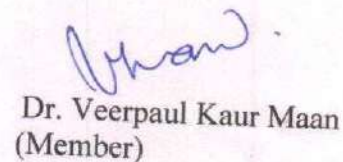 Dr. Veerpaul Kaur Maan
(Member)